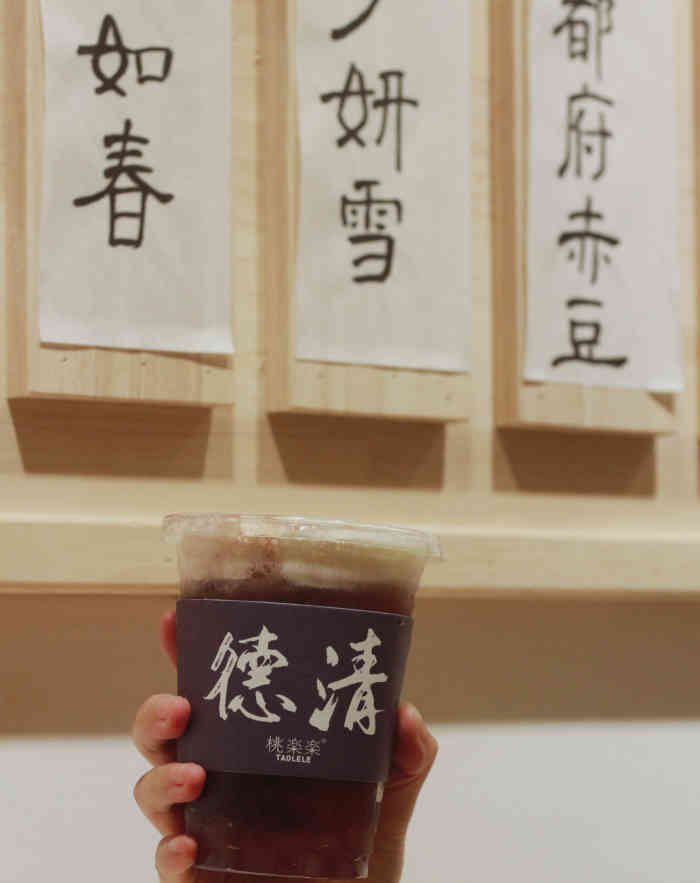 如春
妍雪
都府赤豆
德清
桃楽楽®
TAOLELE